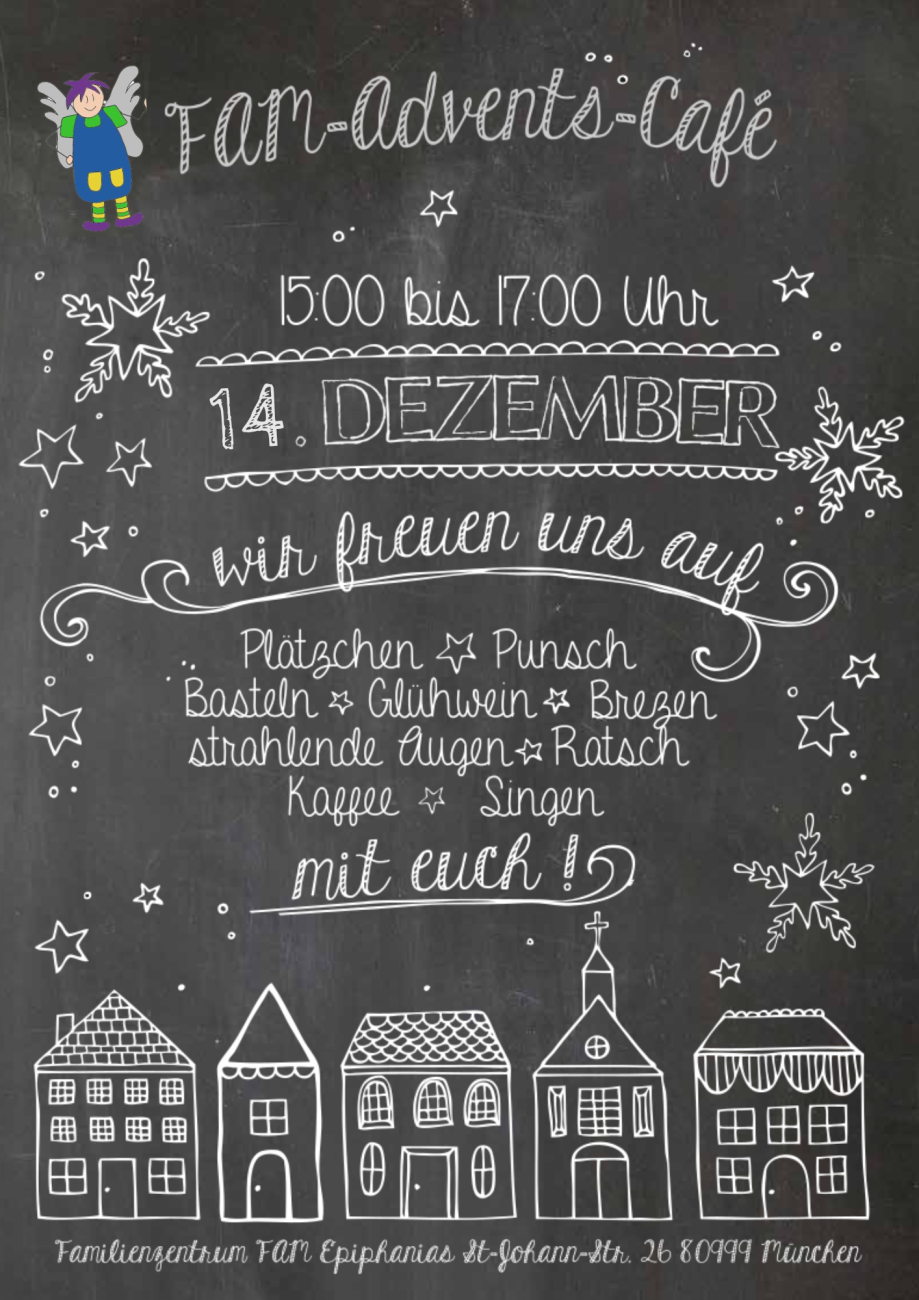 FAM-Advents-Café
15:00 bis 17:00 Uhr
14. DEZEMBER
wir freuen uns auf
Plätzchen Punsch
Basteln Glühwein Brezen
strahlende Augen Ratsch
Kaffee Singen
mit euch!
Familienzentrum FAM Epiphanias St-Johann-Str. 26 80999 München